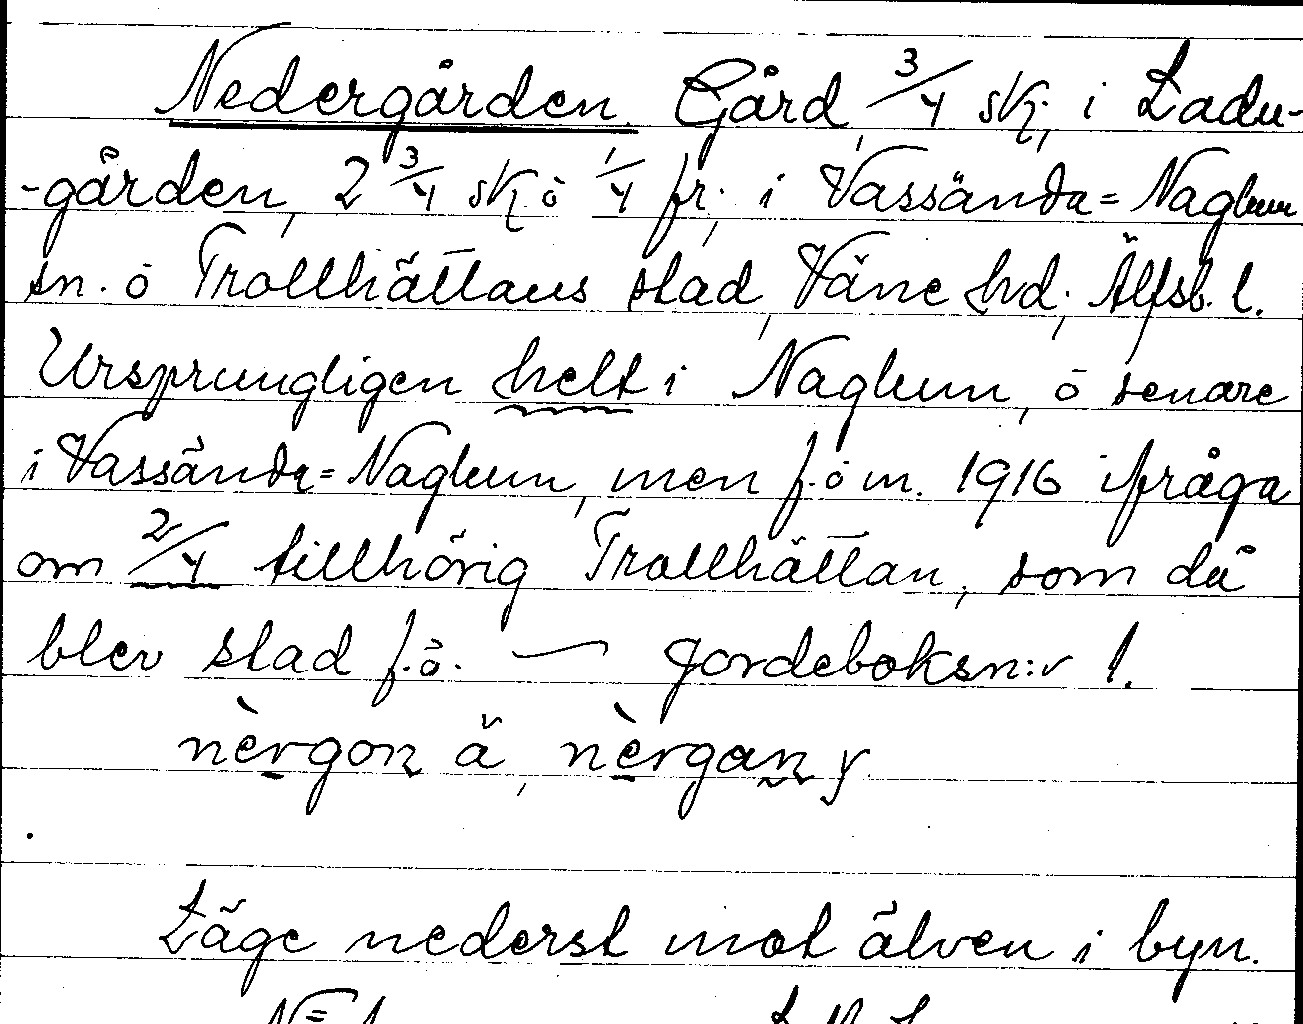 Nedergården. Gård, 3/4 sk; i Ladu-
-gården, 2 3/4 sk ö 1/4 fr; i Vassända=Naglum
sn. ö Trollhättans stad, Väne hd; Älfsb. l.
Ursprungligen helt i Naglum, ö senare
i Vassända=Naglum, men f.ö m. 1916 ifråga
om 2/4 tillhörig Trollhättan, som då
blev stad f.ö. — jordeboksn:r 1.
nèrgon ä, nèrgan y.
Läge nederst mot älven i byn.